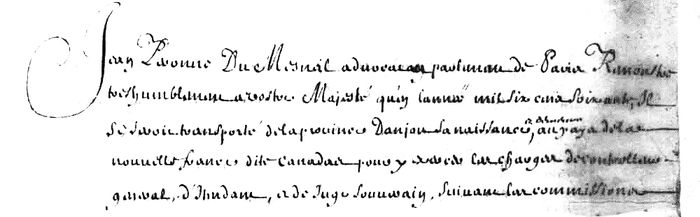 Jean Peronne Du Mesnil advocat au parlement de Paris Remonstre
tres humblement a vostre Majesté qu'en l'année mil six cens soixante, Il
se seroit transporté de la province Danjou sa naissance, au pays de la
nouvelle france dite Canadas pour y exercer les charges de controlleur
general, d'Intendant, et de Juge Souverain, suivant les commissions